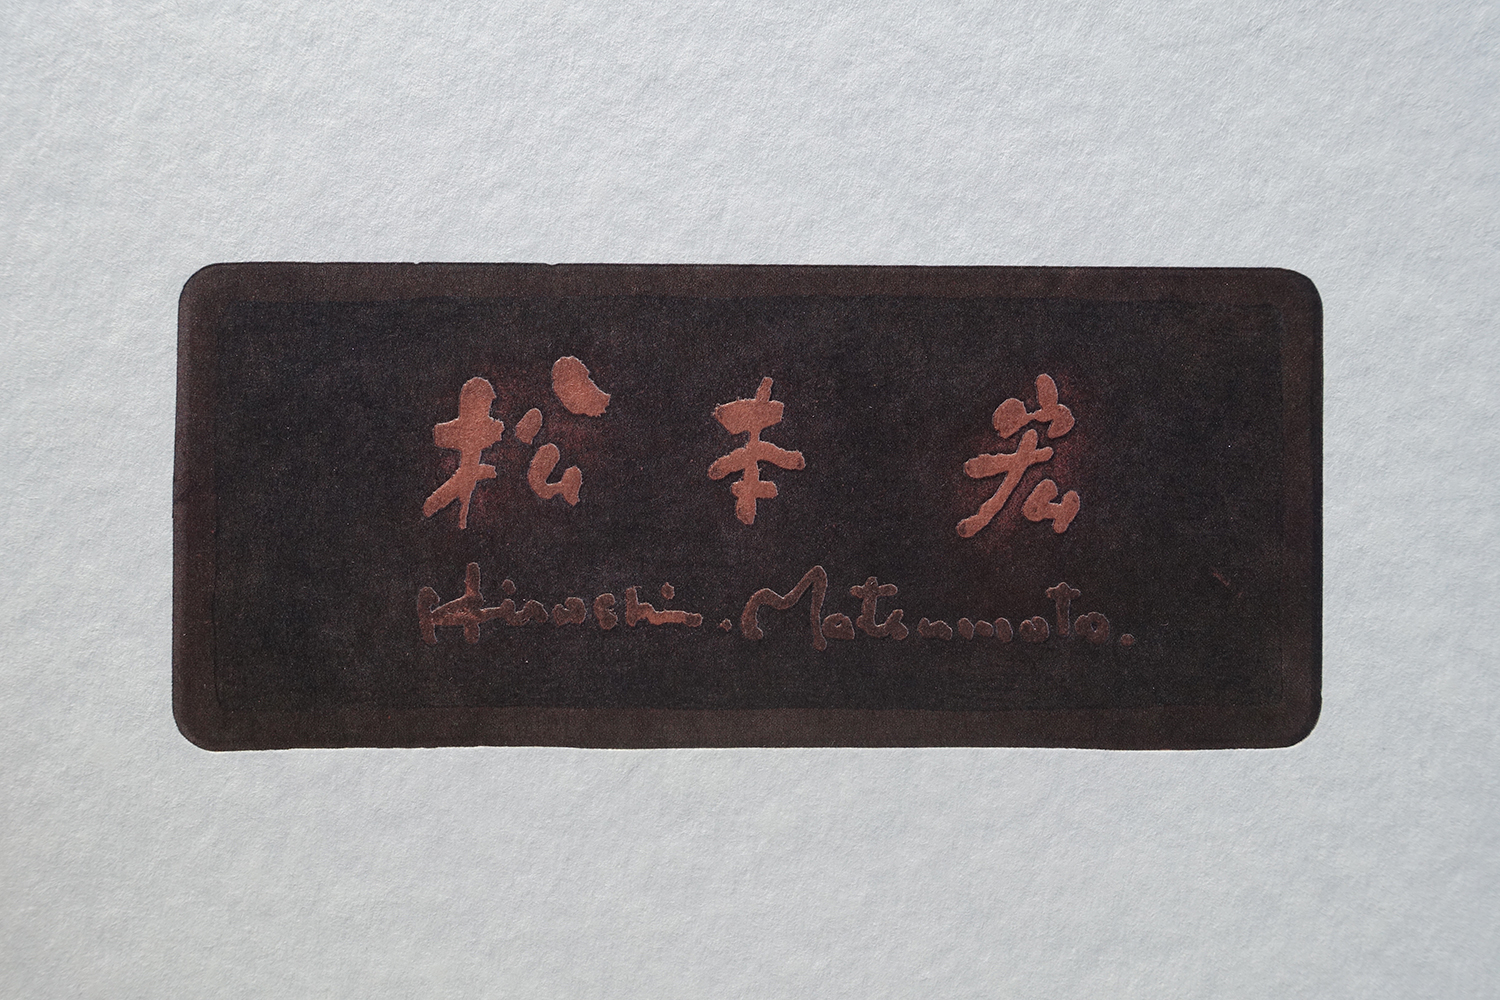 松本宏
Hiroshi. Matsumoto.